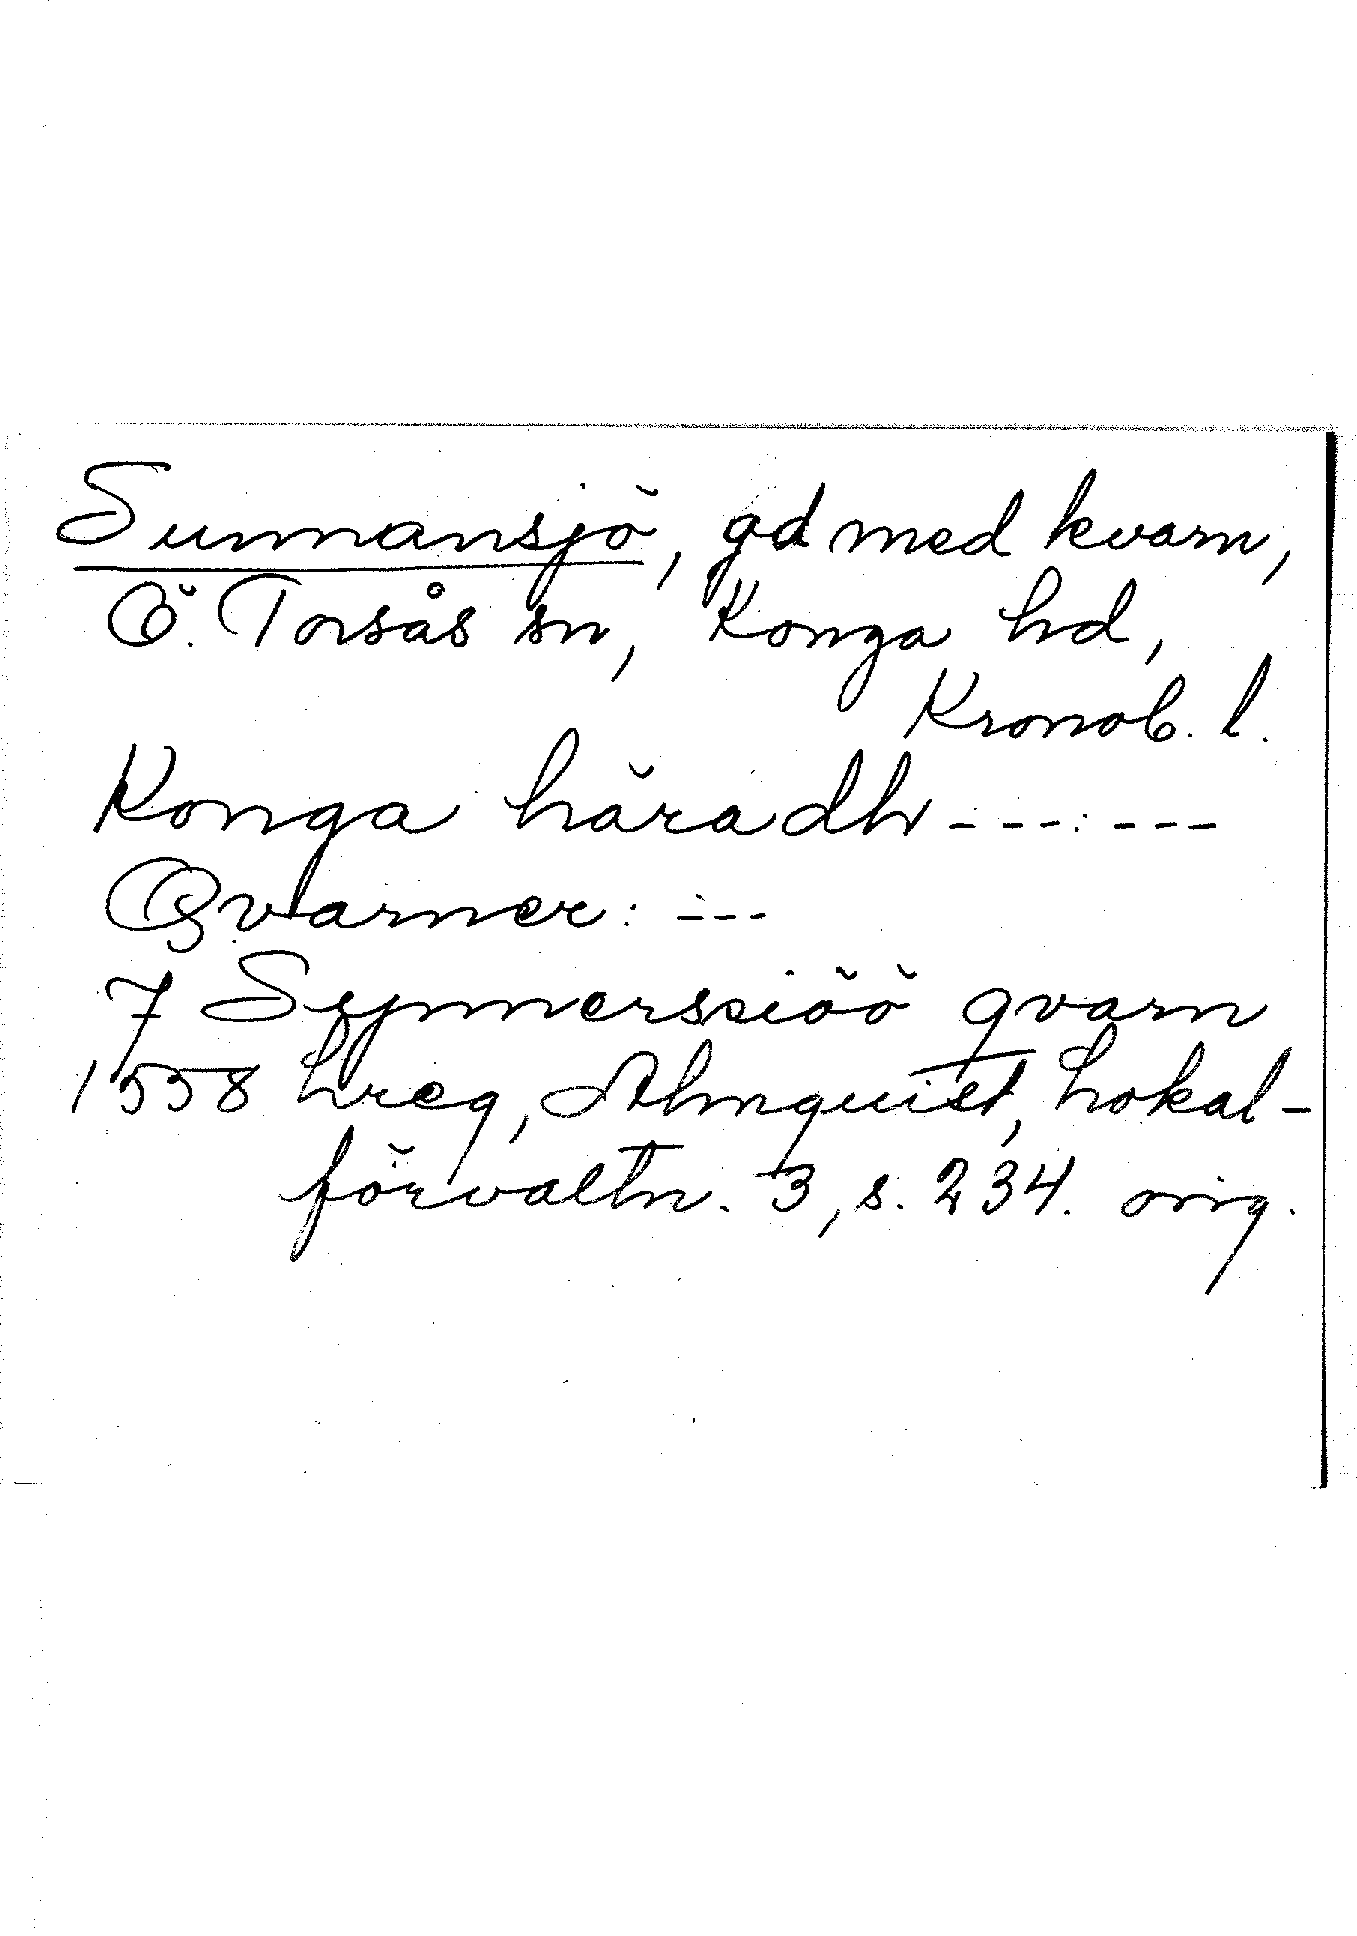 Sunnansjö, gd med kvarn,
Ö. Torsås sn, Konga hd,
Kronob. l.
Konga häradh - - - : - - -
Qvarner: - - -
7 Synnerseiöö qvarn
1558 hreg, Almquist, Lokal-
förvaltn. 3, s. 234. orig.